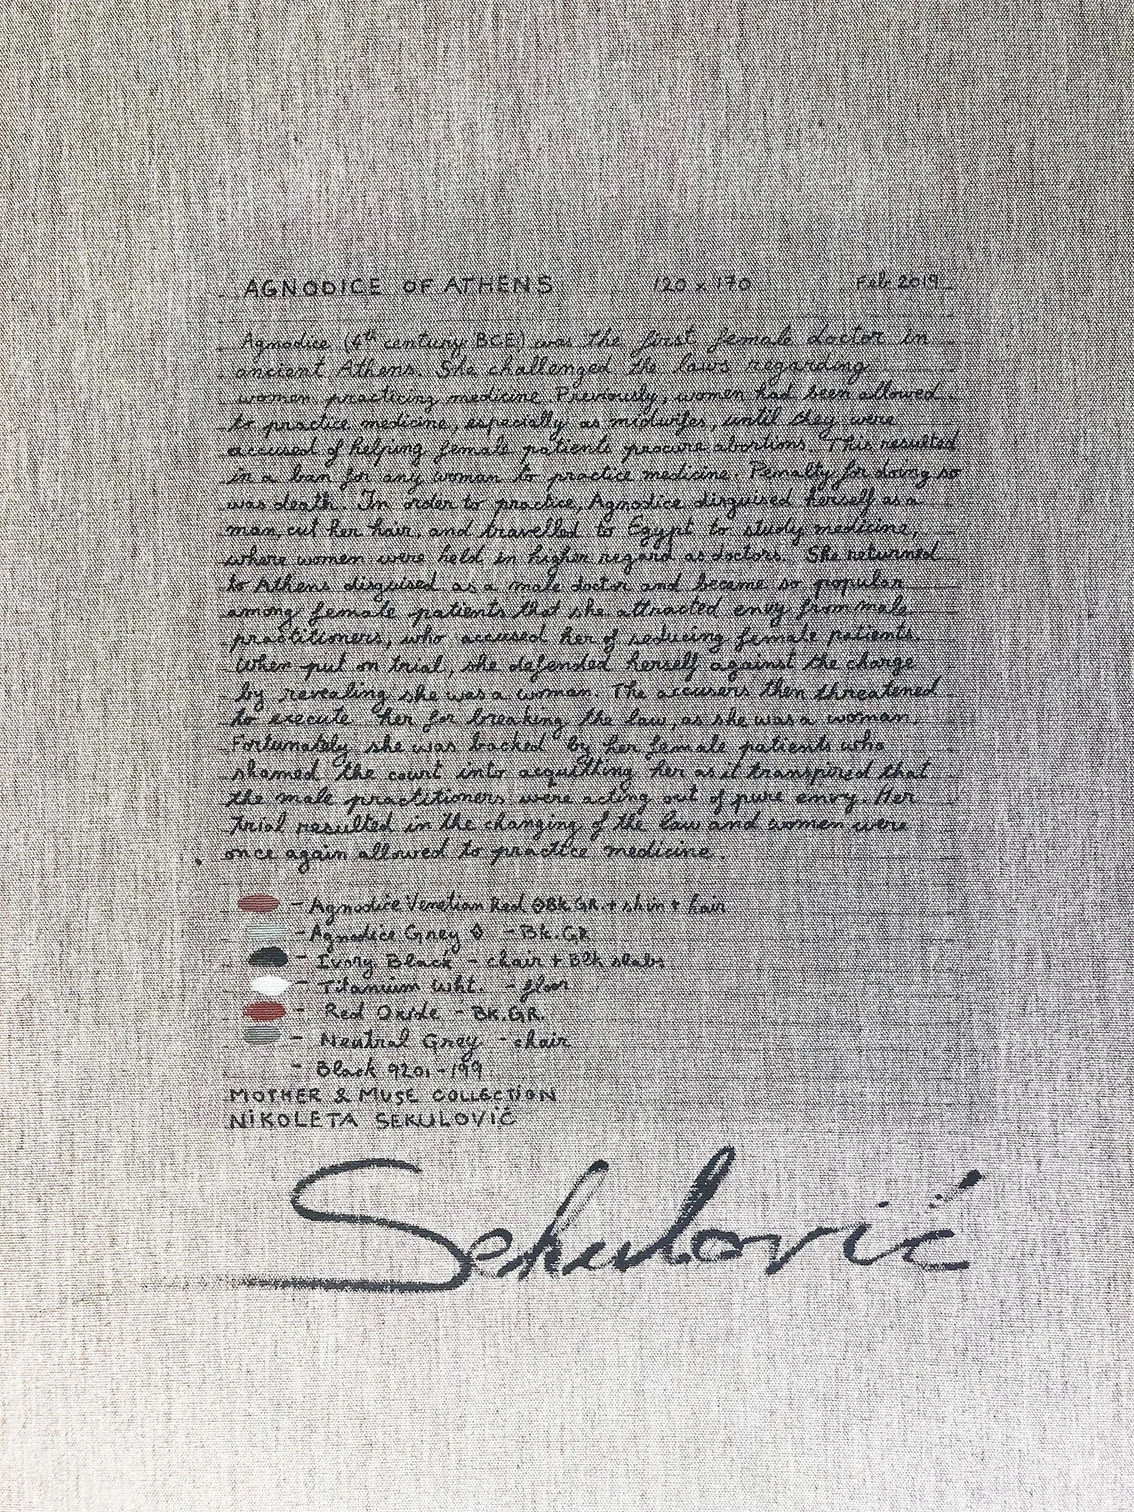 AGNODICE OF ATHENS 120 x 170 Feb 2019
Agnodice (4th century BCE) was the first female doctor in
ancient Athens. She challenged the laws regarding
women practicing medicine. Previously, women had been allowed
to practice medicine, especially as midwifes, until they were
accused of helping female patients procure abortions. This resulted
in a ban for any woman to practice medicine. Penalty for doing so
was death. In order to practice, Agnodice disguised herself as a
man, cut her hair, and travelled to Egypt to study medicine,
where women were held in higher regard as doctors. She returned
to Athens disguised as a male doctor and became so popular
among female patients that she attracted envy from male
practitioners, who accused her of seducing female patients.
When put on trial, she defended herself against the charge
by revealing she was a woman. The accusers then threatened
to execute her for breaking the law, as she was a woman.
Fortunately she was backed by her female patients who
shamed the court into acquitting her as it transpired that
the male practitioners were acting out of pure envy. Her
trial resulted in the changing of the law and women were
once again allowed to practice medicine.
- Agnodice Venetian Red BK.GR. + skin + hair
- Agnodice Grey ◊ - BK.GR
- Ivory Black - chair + Blk slabs
- Titanium Wht. - floor
- Red Oxide - BK.GR.
- Neutral Grey - chair
- Black 9201-199
MOTHER & MUSE COLLECTION
NIKOLETA SEKULOVIĆ
Sekulović